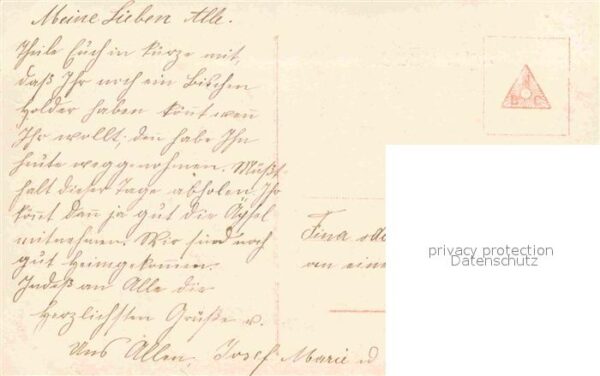 Meine Lieben Alle.
Theile Euch in kürze mit,
daß Ihr noch ein Bischen
Holder haben könt wen̄
Ihr wollt; den habe Ihn
heute weggenohmen. Müßt
halt dieser Tage abholen. Ihr
kön̄t dan̄ ja gut die Äpfel
mitnehmen. Wir sind noch
gut Heimgekom̄en.
Indeß an Alle die
Herzlichsten Grüße v.
Uns Allen, Josef Marie u
Tina ode
an eine
privacy protection
Datenschutz